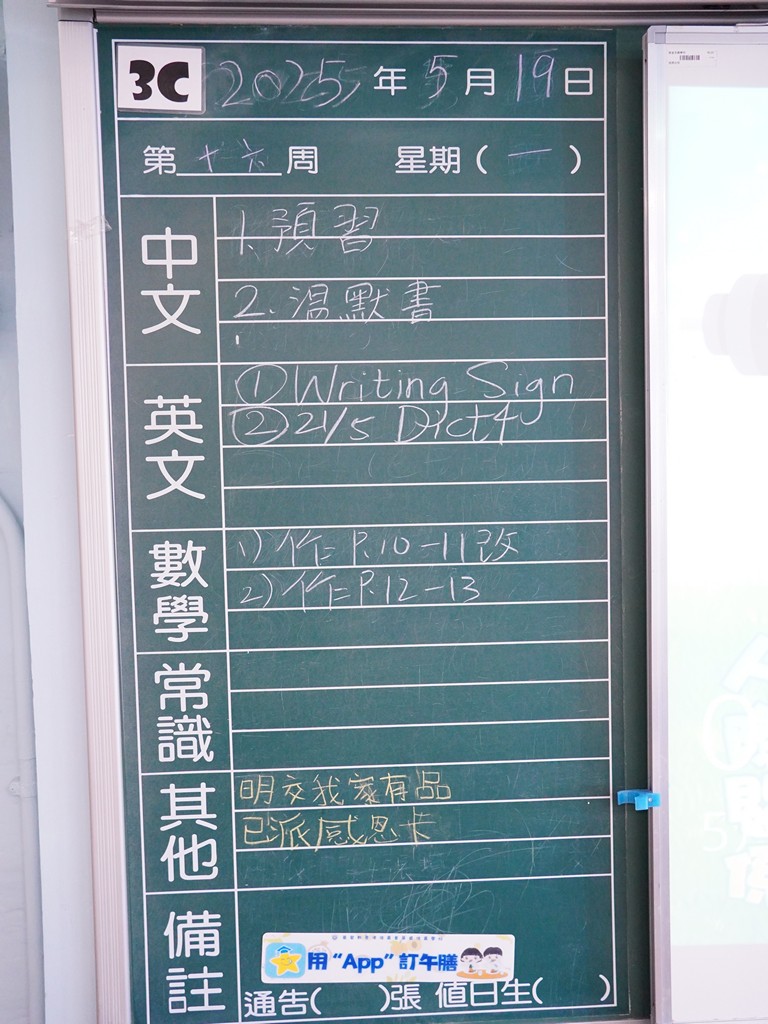 3C 2025年5月19日
第十六周 星期(一)
中文
1. 預習
2. 温默書
英文
① Writing Sign
② 21/5 Dict4
數學
1) 作= P.10-11改
2) 作= P.12-13
常識
其他
明交我家有品
已派感恩卡
備註
用“App”訂午膳
通告( )張 值日生( )